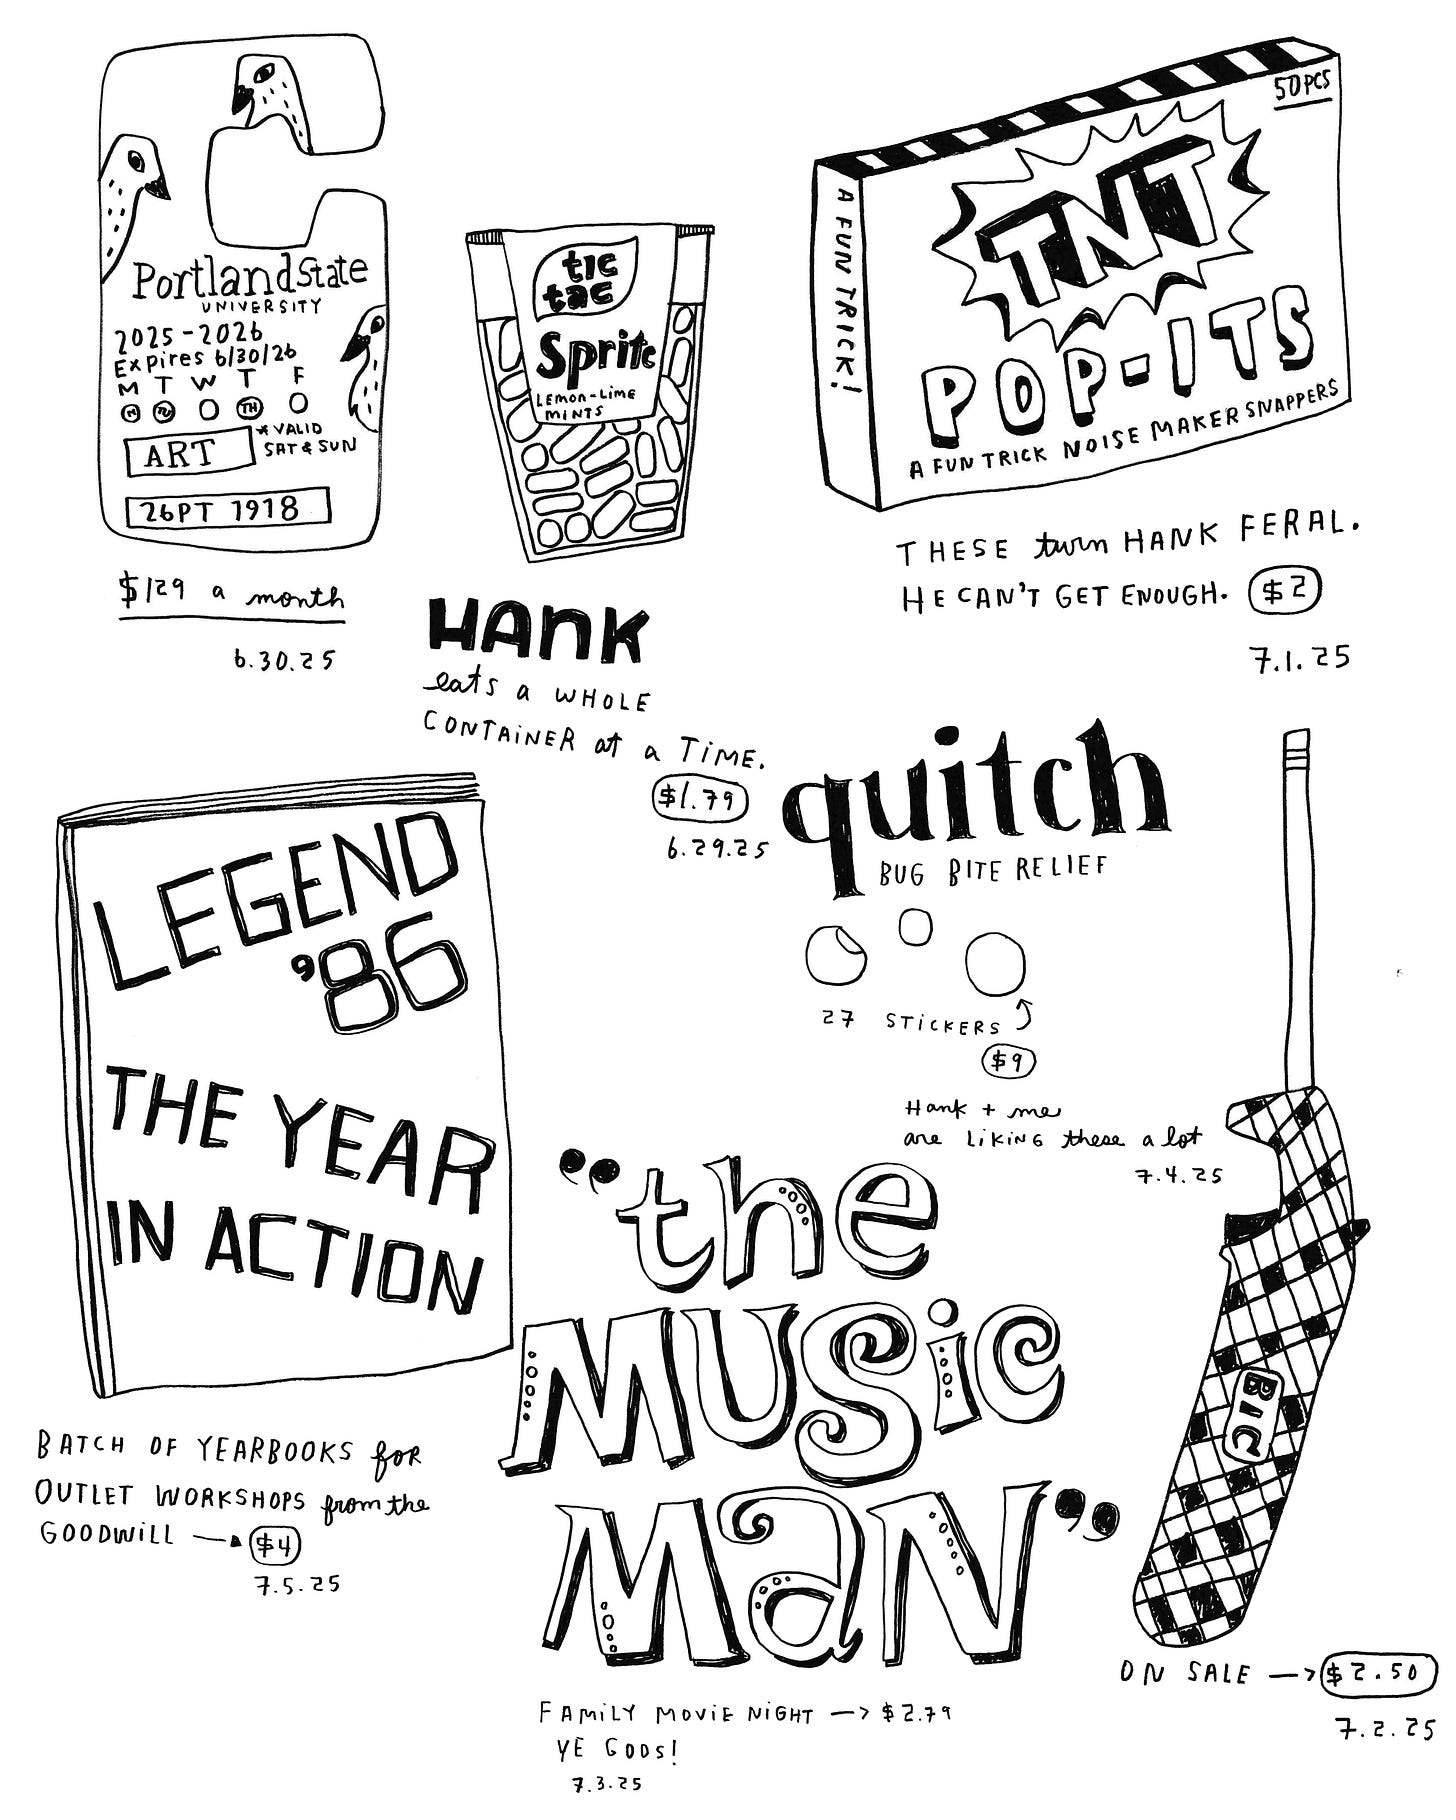 Portland State
UNIVERSITY
2025-2026
Expires 6/30/26
M T W T F
M TU TH
ART
* VALID
SAT & SUN
26PT 1918
$129 a month
6.30.25
tic
tac
Sprite
LEMON-LIME
MINTS
HANK
eats a WHOLE
CONTAINER at a TIME.
$1.79
6.29.25
50 PCS
A FUN TRICK!
TNT
POP-ITS
A FUN TRICK NOISE MAKER SNAPPERS
THESE turn HANK FERAL.
HE CAN'T GET ENOUGH. $2
7.1.25
quitch
BUG BITE RELIEF
27 STICKERS
$9
Hank + me
are LIKING these a lot
7.4.25
LEGEND
'86
THE YEAR
IN ACTION
BATCH OF YEARBOOKS for
OUTLET WORKSHOPS from the
GOODWILL → $4
7.5.25
"the
MUSIC
MAN"
FAMILY MOVIE NIGHT → $2.79
YE GODS!
7.3.25
BIC
ON SALE → $2.50
7.2.25